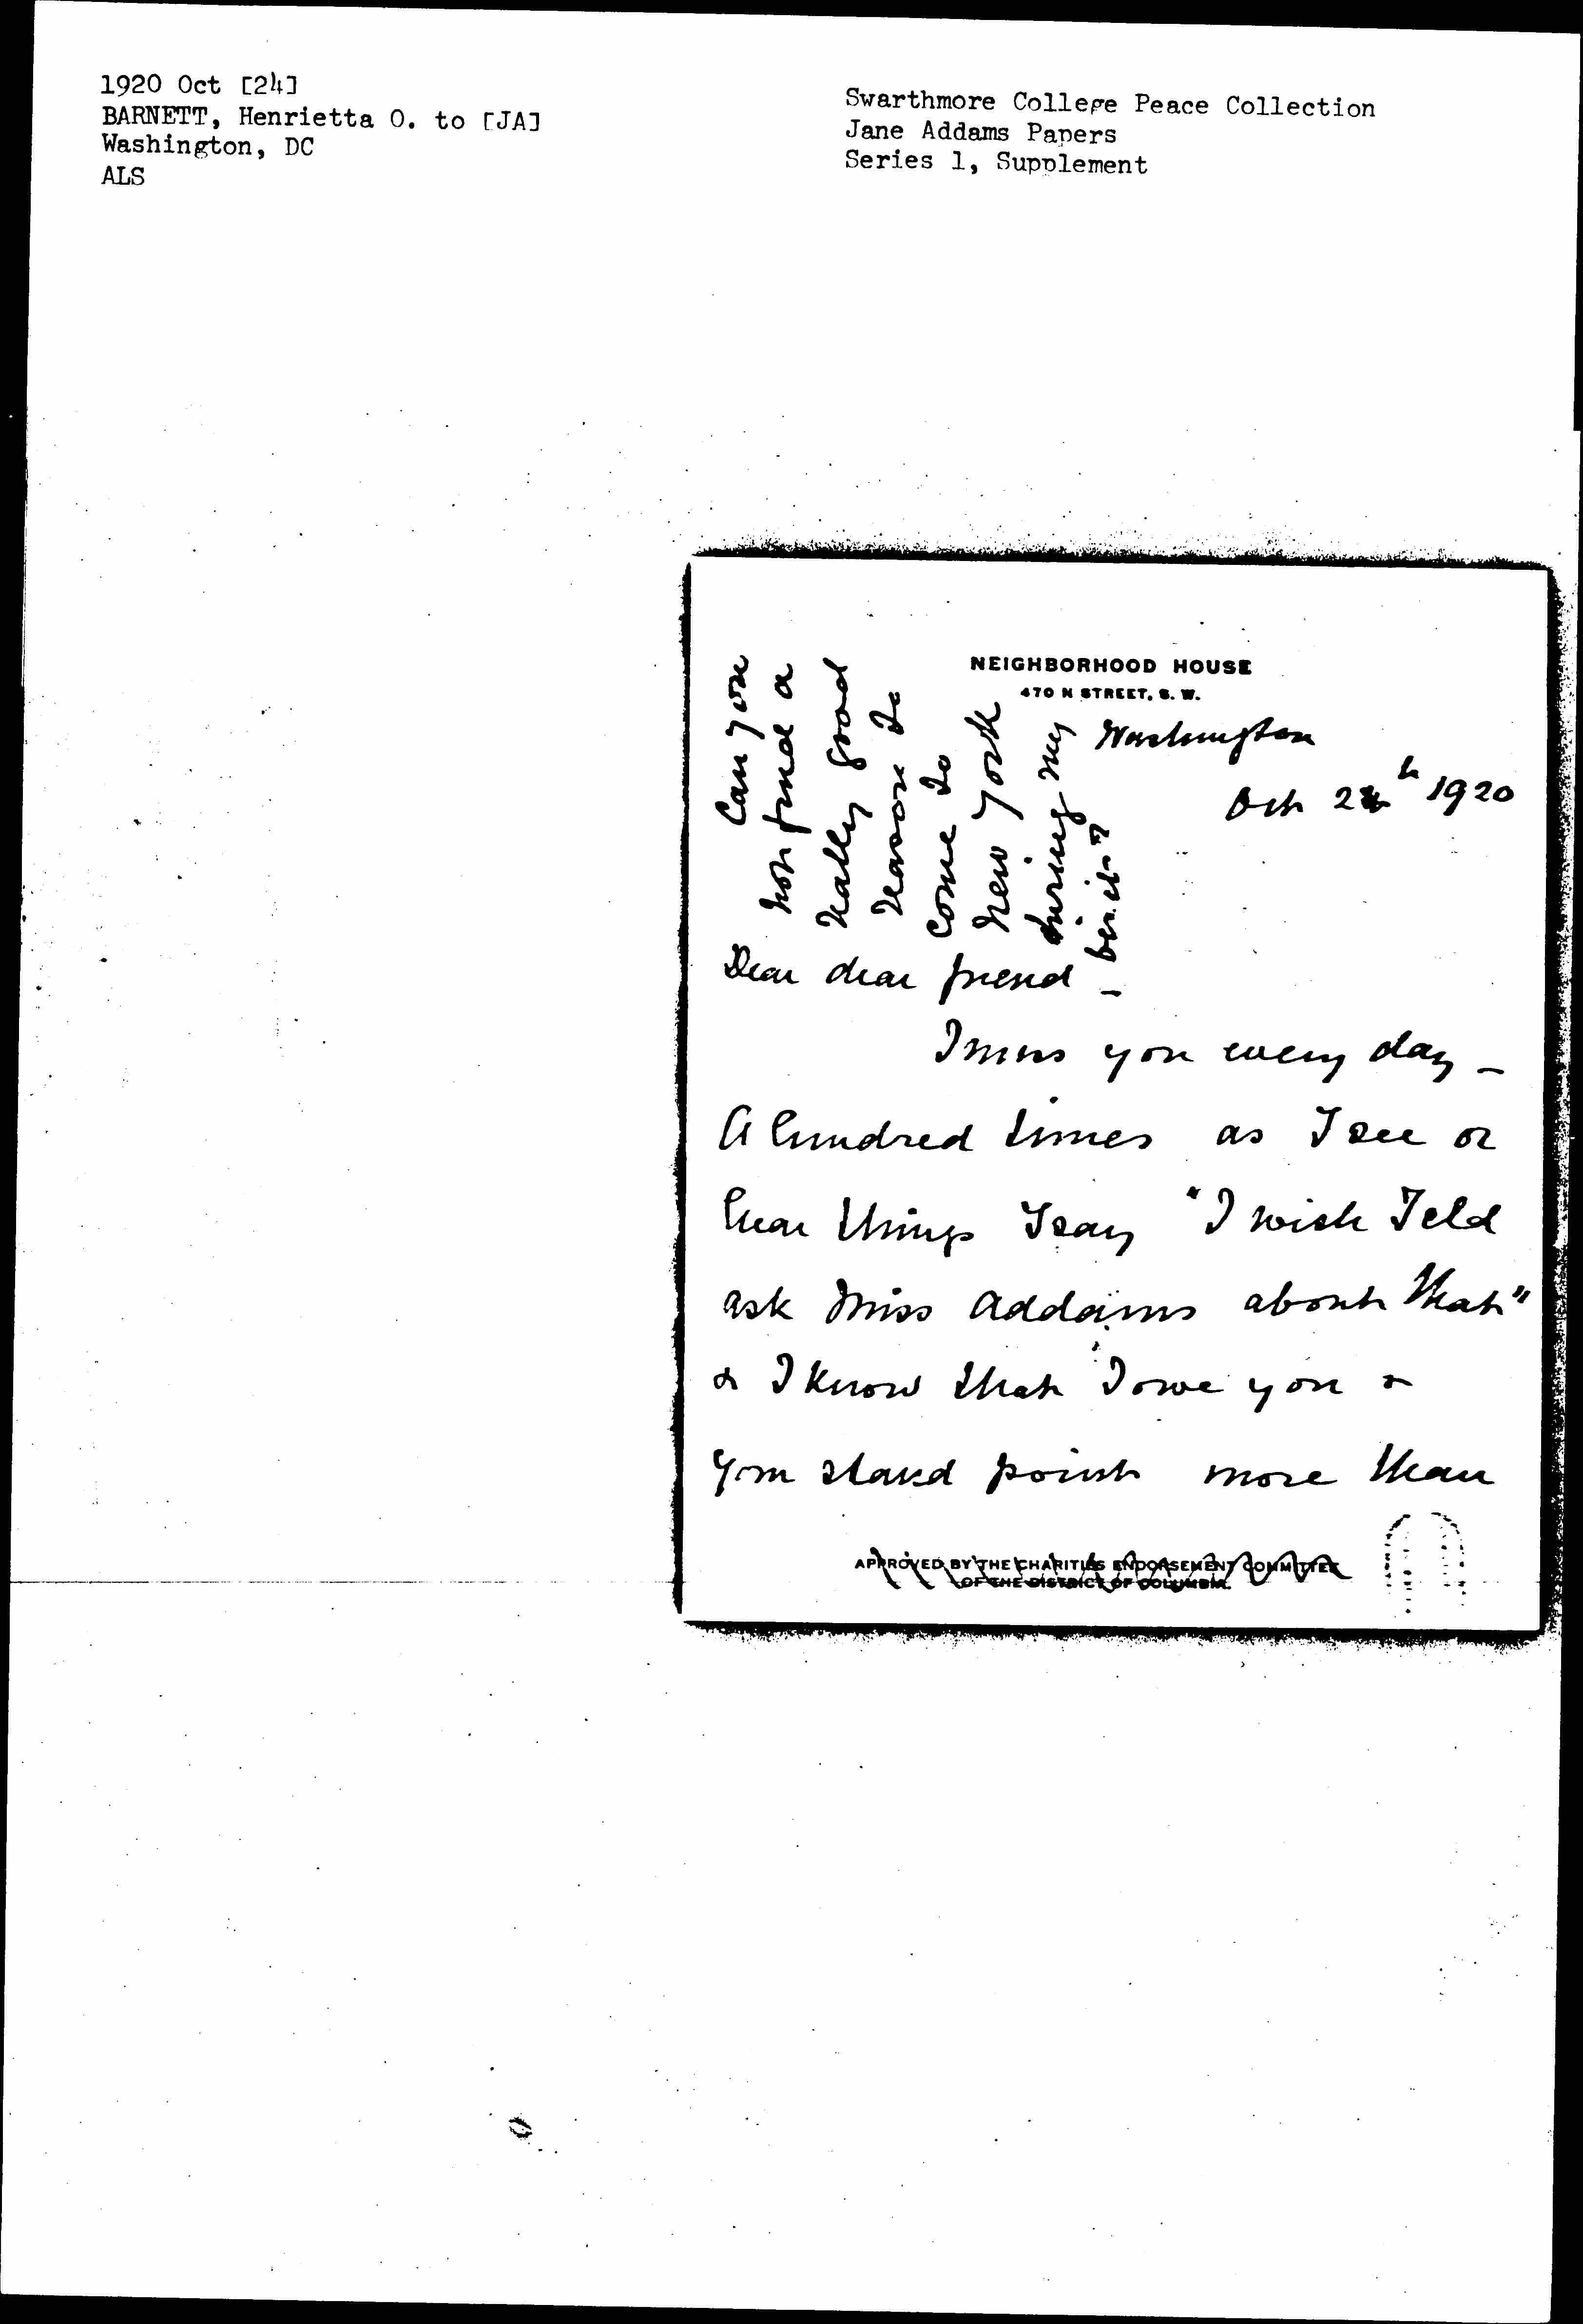 1920 Oct [24]
BARNETT, Henrietta O. to [JA]
Washington, DC
ALS
Swarthmore College Peace Collection
Jane Addams Papers
Series 1, Supplement
NEIGHBORHOOD HOUSE
470 N STREET, S. W.
Washington
Oct 24th 1920
Can you
not find a
really good
reason to
come to
New York
during my
visit?
Dear dear friend —
I miss you every day —
A hundred times as I see or
hear things I say "I wish I cld
ask Miss Addams about that"
& I know that I owe you &
your stand point more than
APPROVED BY THE CHARITIES ENDORSEMENT COMMITTEE
OF THE DISTRICT OF COLUMBIA.